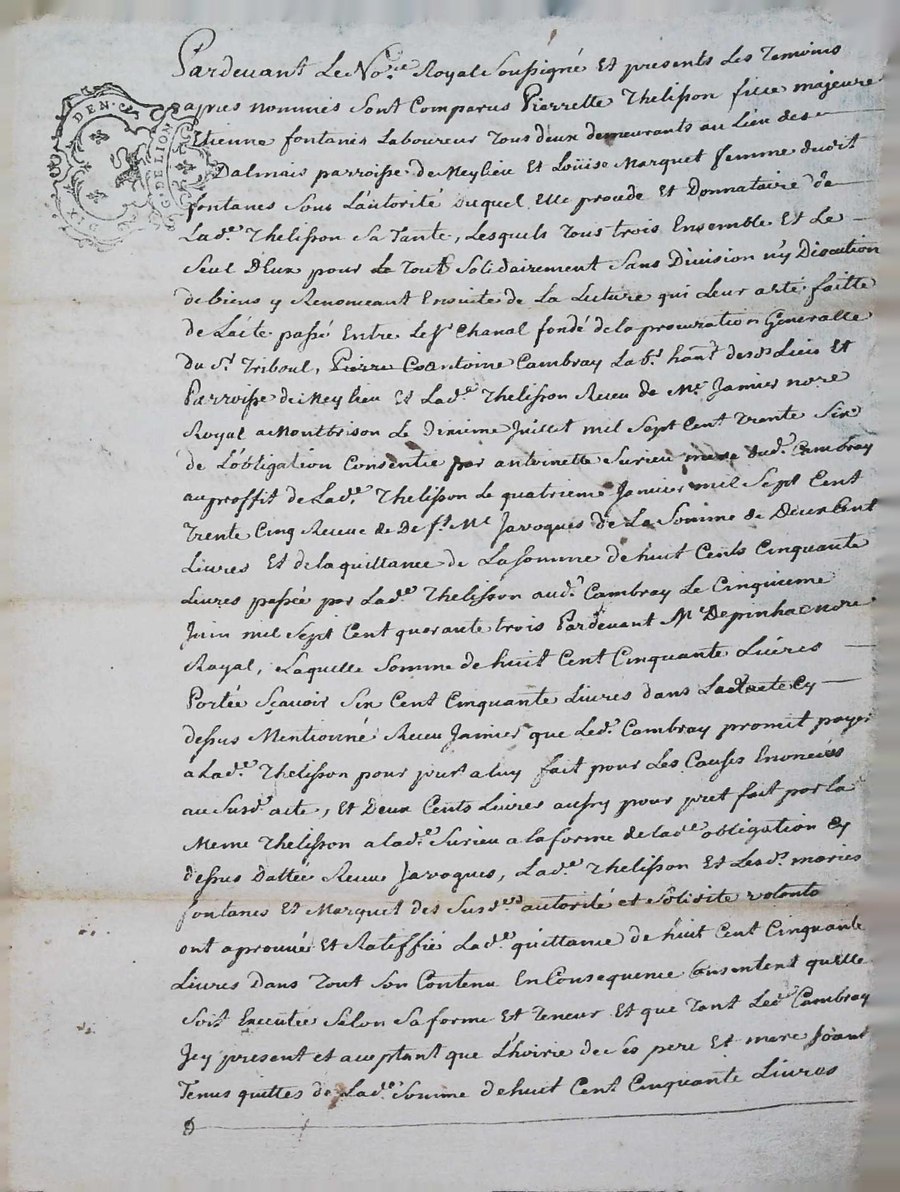 DEN.
G. DE LION
Pardevant Le No.re Royal Soussigné Et presents Les Temoins
apres nommés Sont Comparus Pierrette Thelisson fille majeure
Etienne fontanes Laboureur Tous deux demeurants au Lieu des
Dalmais parroisse de Meylieu Et Loüise Marquet femme dudit
fontanes Sous L'autorité duquel Elle procede Et Donnataire de
Lad.e Thelisson Sa Tante, Lesquels Tous trois Ensemble Et Le
Seul D'Eux pour Le Tout Solidairement Sans Division n'y Discution
de biens y Renonceant Ensuite de La Lecture qui Leur a eté faitte
de L'acte passé Entre Le Sr Chanal fondé de la procuration Generalle
du Sr. Triboul, Pierre Cambray Lab.r hant desds Lieu Et
Parroisse de Meylieu Et Lad.e Thelisson Receu de Me. Jamier nore
Royal a Montbrison Le Juillet mil Sept Cent Trente Six
de L'obligation Consentie par antoinette Surieu mere dud. Cambray
au proffit de Lad.e Thelisson Le quatrieme Janvier mil Sept Cent
Trente Cinq Receue de De ft. Me Javoques de La Somme de Deux Cent
Livres Et de la quittance de La Somme de huit Cents Cinquante
Livres passée par Lad.e Thelisson aud. Cambray Le Cinquieme
Juin mil Sept Cent quarante trois Pardevant Me Depinhac nore
Royal, Laquelle Somme de huit Cent Cinquante Livres
Portée Sçavoir Six Cent Cinquante Livres dans Cy
dessus Mentionné Receu Jamier que Led. Cambray promit payer
a Lad.e Thelisson pour a luy fait pour Les Causes Enoncées
au Susd. acte, Et Deux Cents Livres aussy pour pret fait par la
Meme Thelisson a lad.e Surieu a la forme de lad.e obligation Cy
dessus Dattée Receue Javoques, Lad.e Thelisson Et Lesds mariés
fontanes Et Marquet des Susdes autorité et Solidité
ont aprouvé Et Rateffié Lad.e quittance de huit Cent Cinquante
Livres dans Tout Son Contenu En Consequence Consentent qu'elle
Soit Executée Selon Sa forme Et Teneur Et que Tant Led. Cambray
Jcy present et aceptant que L'hoirie de Ses pere Et mere Soient
Tenus quittes de Lad.e Somme de huit Cent Cinquante Livres